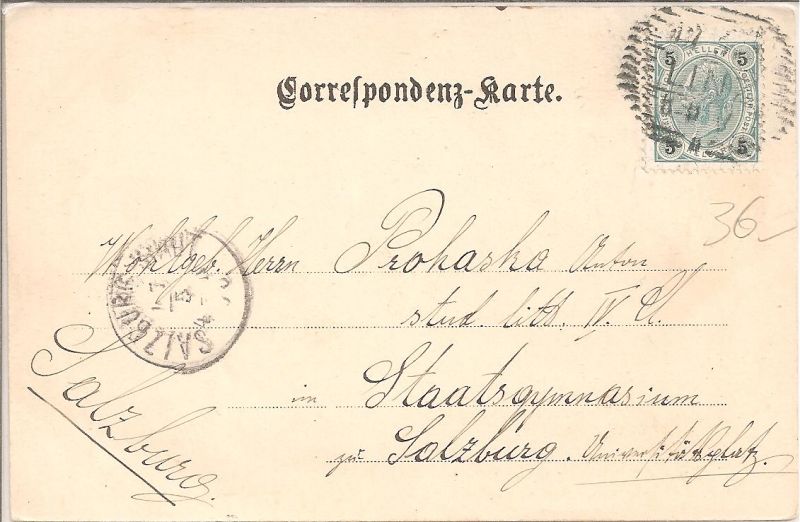 Correspondenz-Karte.
5 HELLER 5
5 5
36-
Wohlgeb. Herrn Prohaska Anton
stud. litt. IV. Cl.
im Staatsgymnasium
zu Salzburg. Universitätsplatz.
Salzburg.
SALZBURG STADT